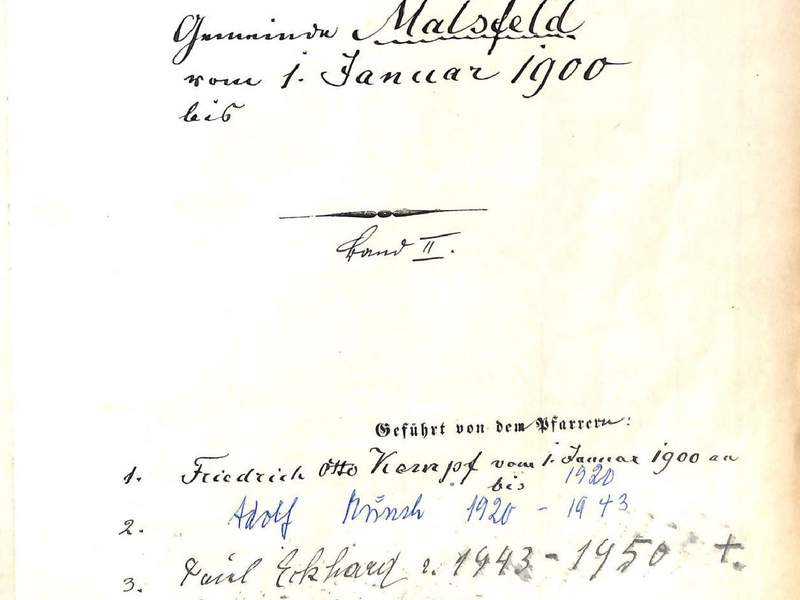 Gemeinde Malsfeld
vom 1. Januar 1900
bis
Band II.
Geführt von dem Pfarrern:
1. Friedrich Otto Kempf vom 1. Januar 1900 an
bis 1920
2. Adolf Münch 1920 - 1943
3. Paul Eckhard v. 1943 - 1950 +.